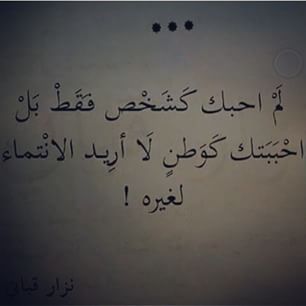 ***
لَمْ احبك كَشَخْص فَقَطْ بَلْ
احْبَبَتك كَوَطنٍ لَا أرِيد الانْتماء
لغيره !
نزار قباني